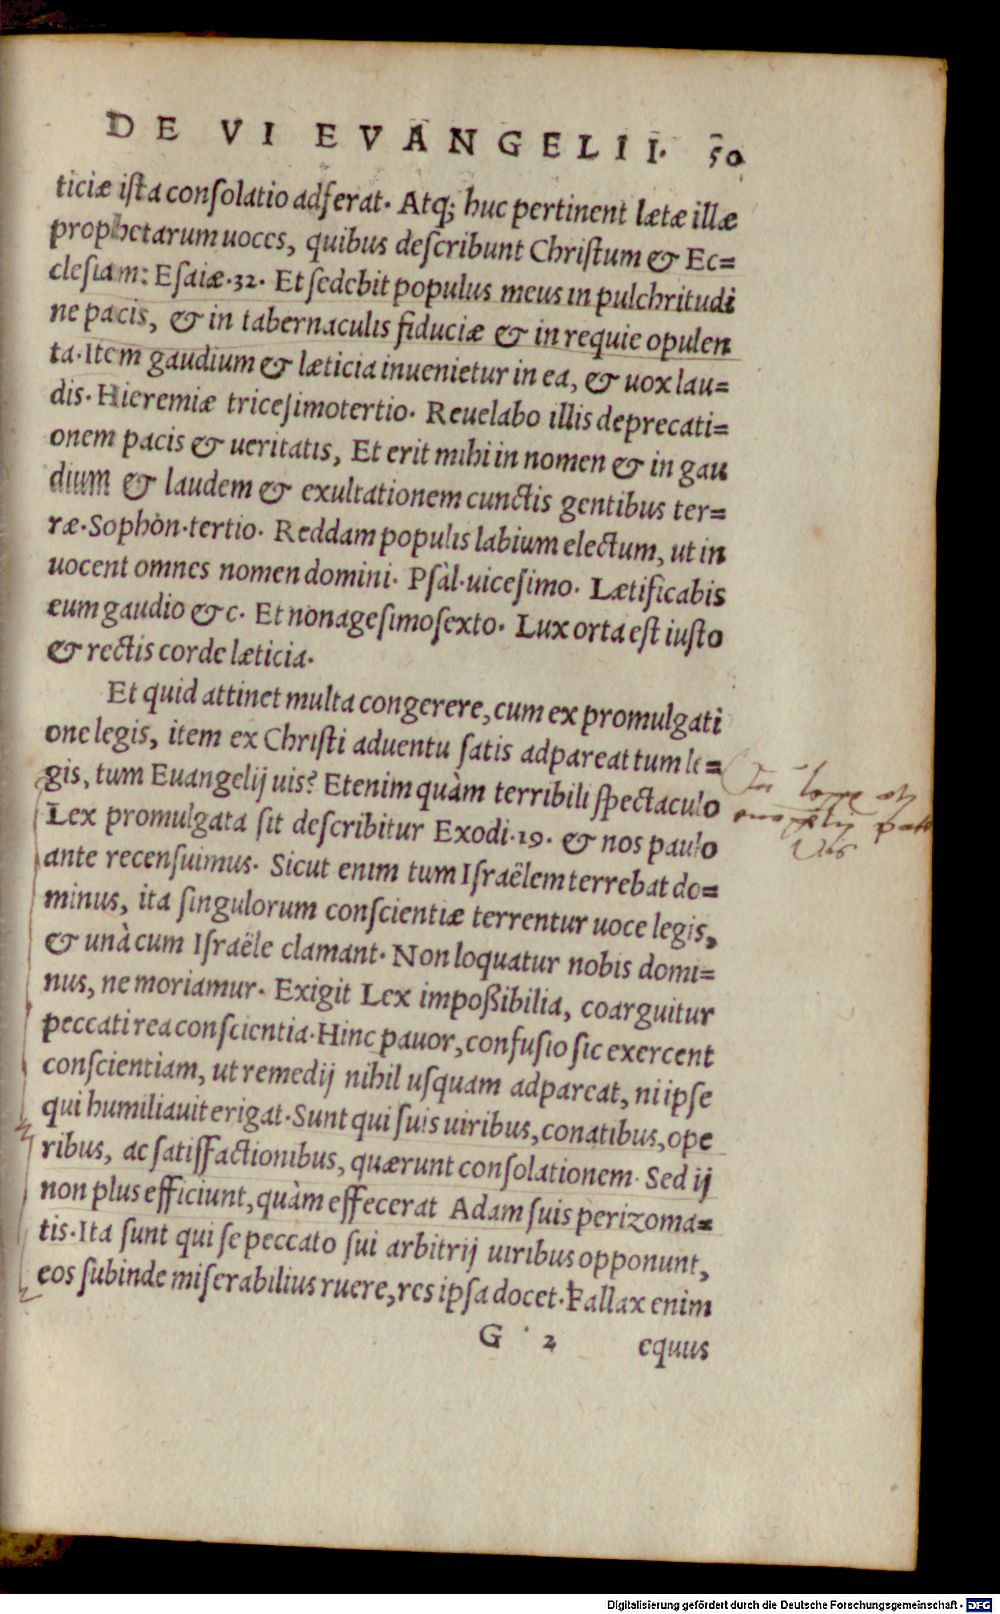 DE VI EVANGELII. 50
ticiæ ista consolatio adferat. Atq; huc pertinent lætæ illæ
prophetarum uoces, quibus describunt Christum & Ec=
clesiam: Esaiæ.32. Et sedebit populus meus in pulchritudi
ne pacis, & in tabernaculis fiduciæ & in requie opulen
ta. Item gaudium & læticia inuenietur in ea, & uox lau=
dis. Hieremiæ tricesimotertio. Reuelabo illis deprecati=
onem pacis & ueritatis, Et erit mihi in nomen & in gau
dium & laudem & exultationem cunctis gentibus ter=
ræ. Sophòn. tertio. Reddam populis labium electum, ut in
uocent omnes nomen domini. Psàl. uicesimo. Lætificabis
eum gaudio &c. Et nonagesimosexto. Lux orta est iusto
& rectis corde læticia.
Et quid attinet multa congerere, cum ex promulgati
one legis, item ex Christi aduentu satis adpareat tum le=
gis, tum Euangelij uis? Etenim quàm terribili spectaculo
Lex promulgata sit describitur Exodi.19. & nos paulo
ante recensuimus. Sicut enim tum Israëlem terrebat do=
minus, ita singulorum conscientiæ terrentur uoce legis,
& unà cum Israële clamant. Non loquatur nobis domi=
nus, ne moriamur. Exigit Lex impoßibilia, coarguitur
peccati rea conscientia. Hinc pauor, confusio sic exercent
conscientiam, ut remedij nihil usquam adpareat, ni ipse
qui humiliauit erigat. Sunt qui suis uiribus, conatibus, ope
ribus, ac satisfactionibus, quærunt consolationem. Sed ij
non plus efficiunt, quàm effecerat Adam suis perizoma=
tis. Ita sunt qui se peccato sui arbitrij uiribus opponunt,
eos subinde miserabilius ruere, res ipsa docet. Fallax enim
G 2 equus
Digitalisierung gefördert durch die Deutsche Forschungsgemeinschaft - DFG